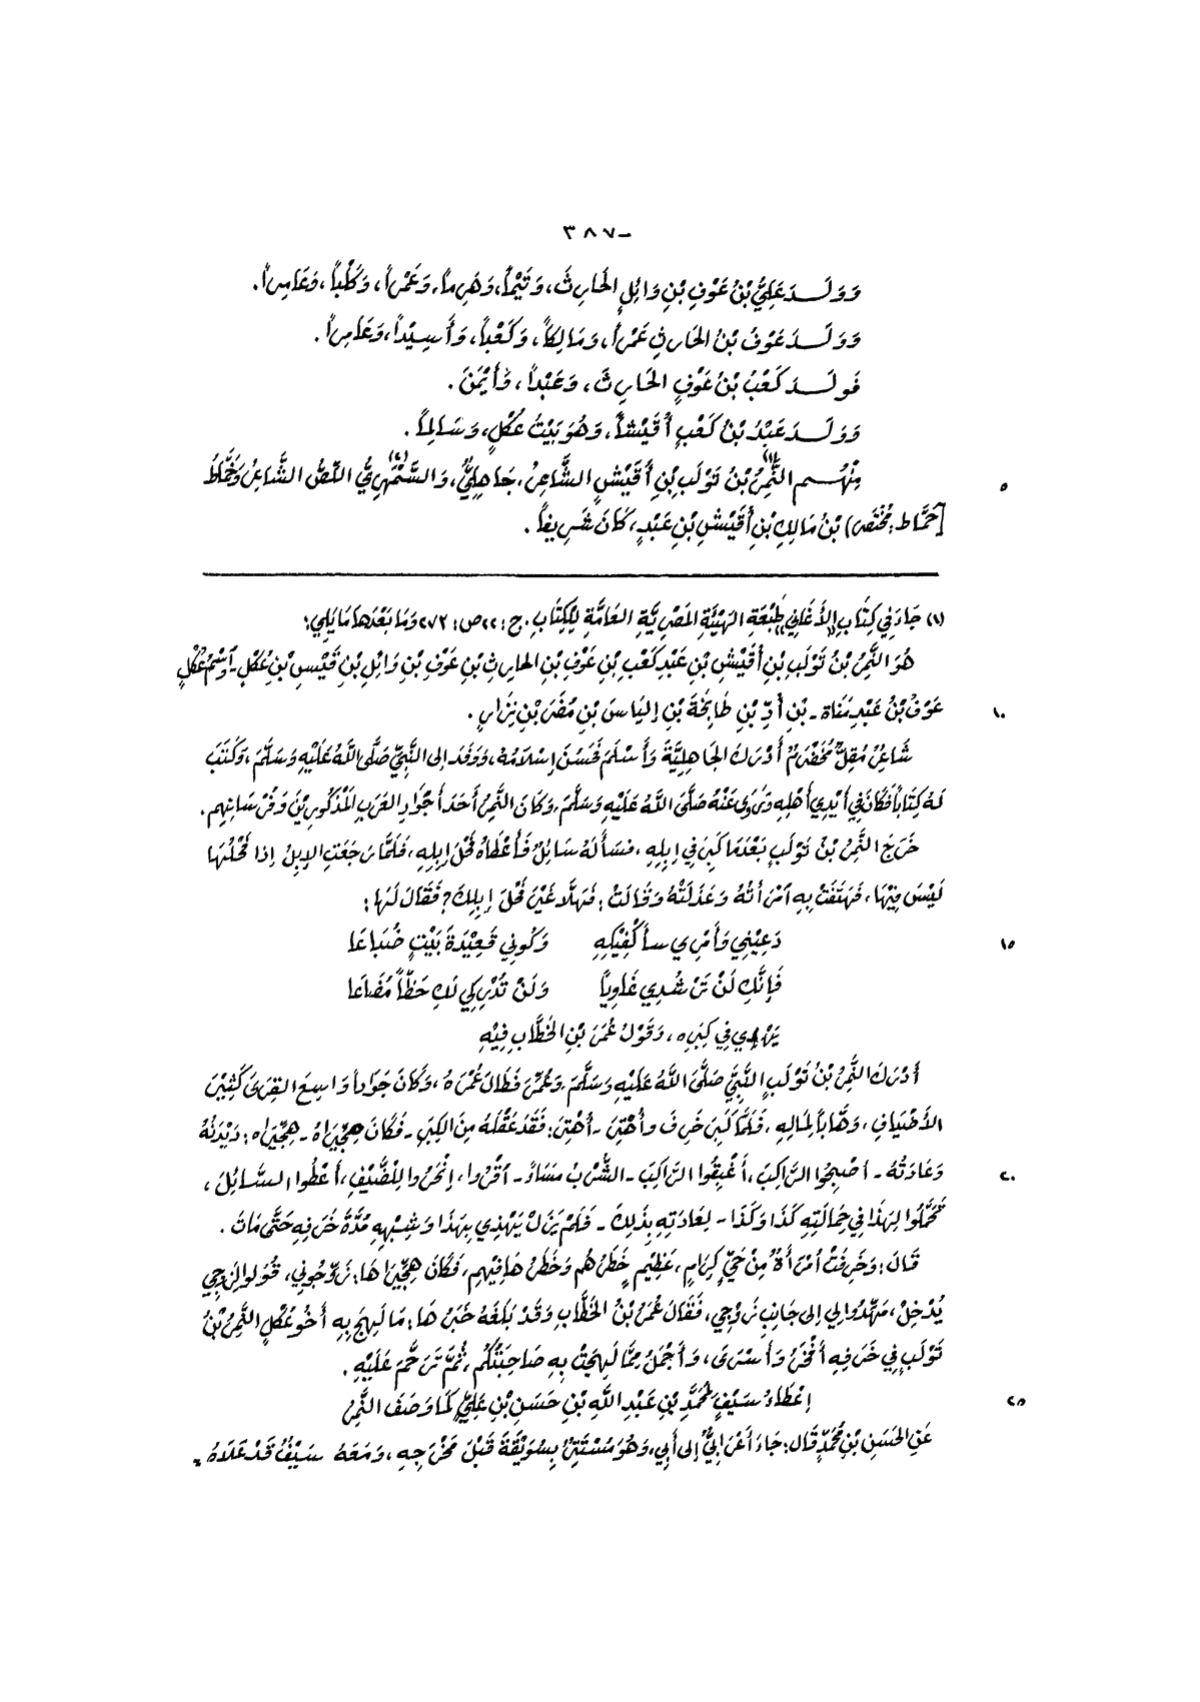 -٣٨٧
وَوَلَـدَ عَلِيُّ بْنُ عَوْفِ بْنِ وَائِلٍ الحَارِثَ، وَتَيْماً، وَهَرِماً، وَعَمْراً، وَكَلْباً، وَعَامِراً.
وَوَلَـدَ عَوْفُ بْنُ الحَارِثِ عَمْراً، وَمَالِكاً، وَكَعْباً، وَأَسِيْداً، وَعَامِراً.
فَولَـدَ كَعْبُ بْنُ عَوْفٍ الحَارِثَ، وَعَبْداً، وَأَيْمَنَ.
وَوَلَـدَ عَبْدُ بْنُ كَعْبٍ أُقَيْشاً، وَهُوَ بَيْتُ عُكْلٍ، وَسَالِماً.
مِنْهُـم النَّمِرُ(١) بْنُ تَوْلَبِ بْنِ أُقَيْشٍ الشَّاعِرُ، جَاهِلِيٌّ، وَالسَّمْهَرِيُّ(٢) اللِّصُّ الشَّاعِرُ، وَخُمَّاطُ ٥
[حَمَّاط: مُخْتَصَر) بْنُ مَالِكِ بْنِ أُقَيْشِ بْنِ عَبْدٍ، كَانَ شَرِيفاً.
(١) جَاءَ فِي كِتَابِ «الأَغَانِي» طَبْعَةِ الهَيْئَةِ المَصْرِيَّةِ العَامَّةِ لِلْكِتَابِ. ج: ٢٢ ص: ٢٧٣ وَمَا بَعْدَهَا مَا يَلِي:
هُوَ النَّمِرُ بْنُ تَوْلَبِ بْنِ أُقَيْشِ بْنِ عَبْدِ كَعْبِ بْنِ عَوْفِ بْنِ الحَارِثِ بْنِ عَوْفِ بْنِ وَائِلِ بْنِ قَيْسِ بْنِ عُكْلٍ - وَاسْمُ عُكْلٍ
عَوْفُ بْنُ عَبْدِ مَنَاةَ - بْنِ أُدِّ بْنِ طَابِخَةَ بْنِ إليَاسَ بْنِ مُضَرَ بْنِ نِزَارٍ. ١٠
شَاعِرٌ مُقِلٌّ مُخَضْرَمٌ أَدْرَكَ الجَاهِلِيَّةَ وَأَسْلَمَ فَحَسُنَ إِسْلَامُهُ، وَوَفَدَ إلى النَّبِيِّ صَلَّى اللَّهُ عَلَيْهِ وَسَلَّمَ، وَكَتَبَ
لَهُ كِتَاباً فَكَانَ فِي أَيْدِي أَهْلِهِ وَرَوَى عَنْهُ صَلَّى اللَّهُ عَلَيْهِ وَسَلَّمَ، وَكَانَ النَّمِرُ أَحَدَ أَجْوَادِ العَرَبِ المَذْكُورِيْنَ وَفُرْسَانِهِم.
خَرَجَ النَّمِرُ بْنُ تَوْلَبٍ بَعْدَمَا كَبِرَ فِي إِبِلِهِ، فَسَأَلَهُ سَائِلٌ فَأَعْطَاهُ فَحْلَ إِبِلِهِ، فَلَمَّا رَجَعَتِ الإِبِلُ إذا فَحْلُهَا
لَيْسَ فِيْهَا، فَهَتَفَتْ بِهِ امْرَأَتُهُ وَعَذَلَتْهُ وَقَالَتْ: فَهَلَّا غَيْرَ فَحْلِ إِبِلِكَ؟ فَقَالَ لَهَا:
دَعِيْنِي وَأَمْرِي سأَكْفِيْكِهِ وَكُونِي قَعِيْدَةَ بَيْتٍ ضُبَاعَا ١٥
فَإِنَّكِ لَنْ تَرْشُدِي غَاوِياً وَلَنْ تُدْرِكِي لَكِ حَظّاً مُضَاعَا
يَهْذِي فِي كِبَرِهِ، وَقَوْلُ عُمَرَ بْنِ الخَطَّابِ فِيْهِ
أَدْرَكَ النَّمِرُ بْنُ تَوْلَبٍ النَّبِيَّ صَلَّى اللَّهُ عَلَيْهِ وَسَلَّمَ وَعُمِّرَ فَطَالَ عُمْرُهُ، وَكَانَ جَوَاداً وَاسِعَ القِرَى كَثِيْرَ
الأَضْيَافِ، وَهَّاباً لِمَالِهِ، فَلَمَّا كَبِرَ خَرِفَ وأُهْتِرَ - أُهْتِرَ: فَقَدَ عَقْلَهُ مِنَ الكِبَرِ - فَكَانَ هِجِّيْرَاهُ - هِجِّيْرَاه: دَيْدَنُهُ
وَعَادَتُهُ - اصْبِحُوا الرَّاكِبَ، أَغْبِقُوا الرَّاكِبَ - الشُّرْبُ مَسَاءً - اقْرُوا، إِنْحَرُوا لِلْضَّيْفِ، أَعْطُوا السَّائِلَ، ٢٠
تَحَمَّلُوا لِهَذَا فِي حِمَالَتِهِ كَذَا وَكَذَا - لِعَادَتِهِ بِذَلِكَ - فَلَمْ يَزَلْ يَهْذِي بِهَذَا وَشِبْهِهِ مُدَّةَ خَرَفِهِ حَتَّى مَاتَ.
قَالَ: وَخَرِفَتُ امْرَأَةٌ مِنْ حَيٍّ كِرَامٍ، عَظِيْمٍ خَطَرُهُم وَخَطَرُهَا فِيْهِم، فَكَانَ هِجِّيْرَاهَا: زَوِّجُونِي، قُولُوا لِزَوْجِي
يُدْخِلْ، مَهِّدُوا لِي إلى جَانِبِ زَوْجِي، فَقَالَ عُمَرُ بْنُ الخَطَّابِ وَقَدْ بَلَغَهُ خَبَرُهَا: مَا لَهِجَ بِهِ أَخُو عُكْلٍ النَّمِرُ بْنُ
تَوْلَبٍ فِي خَرَفِهِ أَفْخَرُ وَأَسْرَى، وَأَجْمَلُ مِمَّا لَهِجَتْ بِهِ صَاحِبَتُكُم، ثُمَّ تَرَحَّمَ عَلَيْهِ.
إعْطَاءُ سَيْفٍ لِمُحَمَّدِ بْنِ عَبْدِ اللَّهِ بْنِ حَسَنِ بْنِ عَلِيٍّ كَمَا وَصَفَ النَّمِرُ ٢٥
عَنِ الحَسَنِ بْنِ مُحَمَّدٍ قَالَ: جَاءَ أَعْرَابِيٌّ إلى أَبِي، وَهُوَ مُسْتَتِرٌ بِسُوَيْقَةَ قَبْلَ مَخْرَجِهِ، وَمَعَهُ سَيْفٌ قَدْ عَلَاهُ =